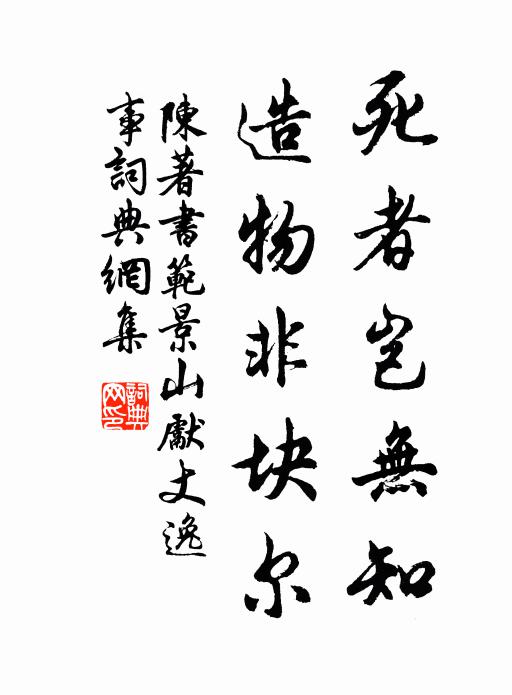 死者岂無知
造物非块尔
陳著書範景山獻丈逸
事詞典網集
詞典
网印